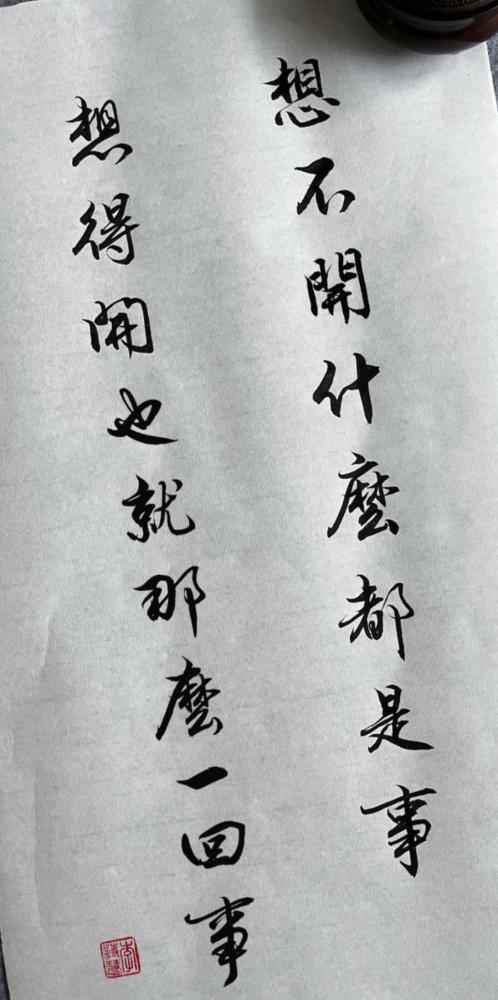 想不開什麼都是事
想得開也就那麼一回事